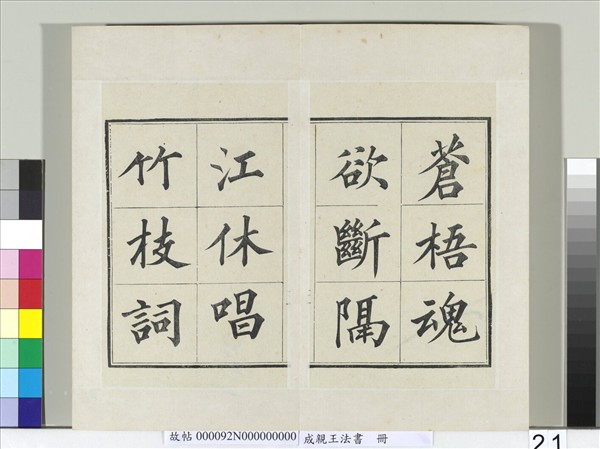 蒼梧魂
欲斷隔
江休唱
竹枝詞
故帖 000092N000000000 成親王法書 冊
21